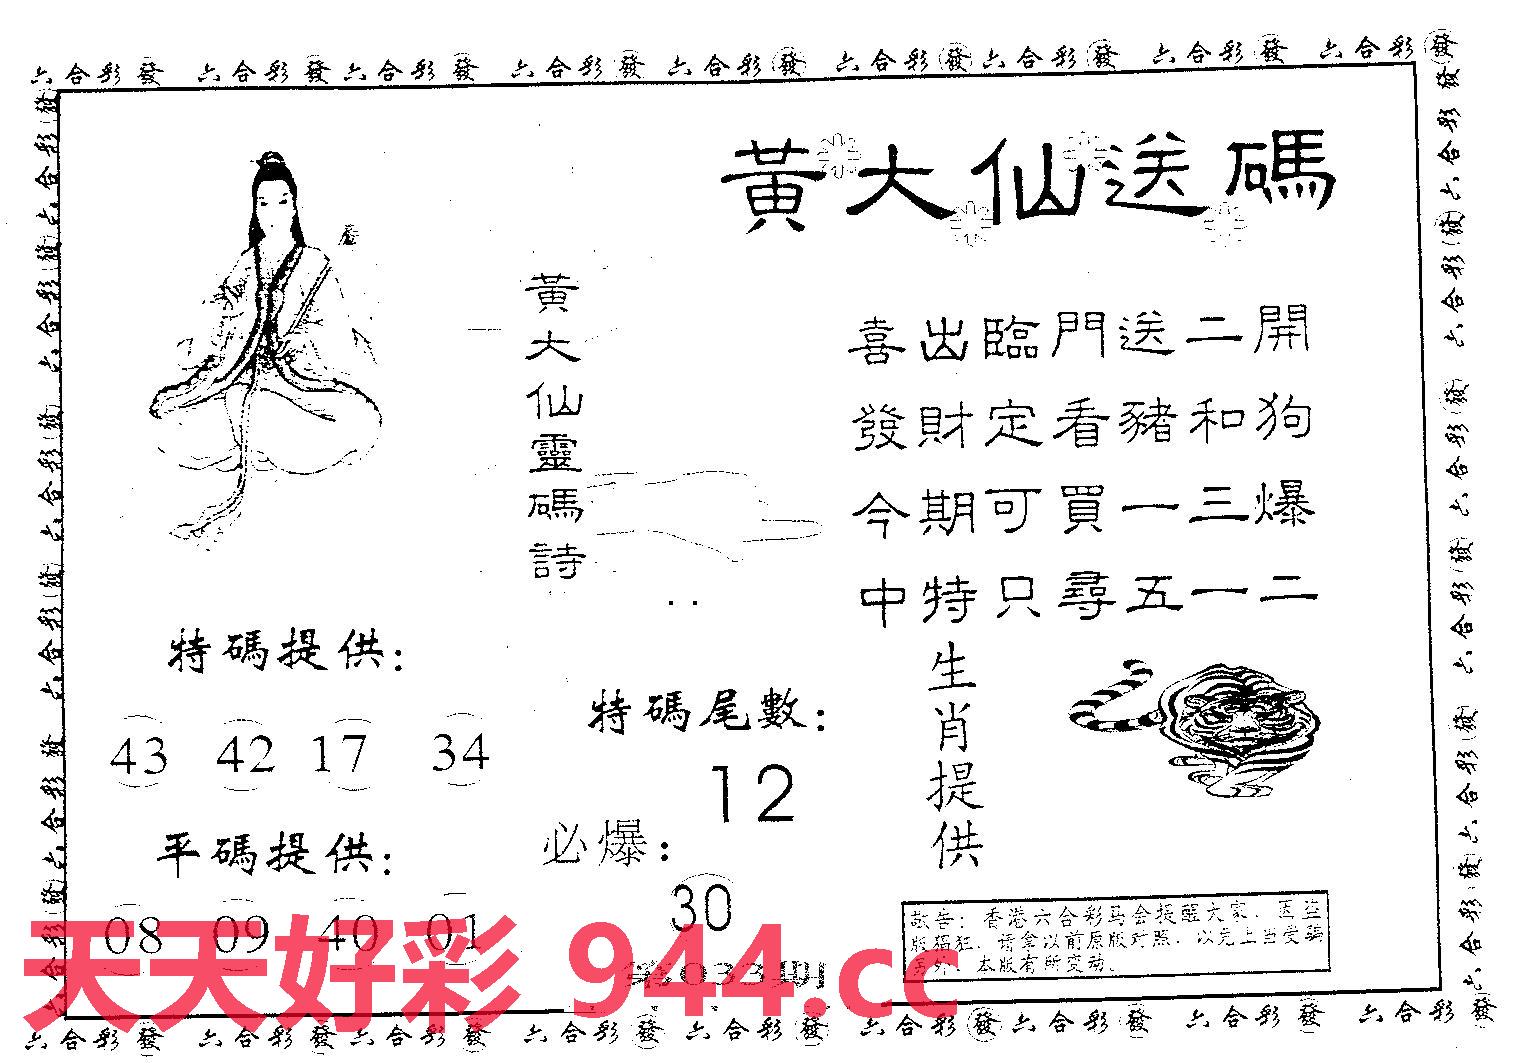 六合彩發 六合彩發 六合彩發 六合彩發 六合彩發 六合彩發 六合彩發 六合彩發 六合彩發
黃大仙送碼
黃大仙靈碼詩
喜出臨門送二開
發財定看豬和狗
今期可買一三爆
中特只尋五一二
特碼提供:
43 42 17 34
平碼提供:
08 09 40 01
特碼尾數:
12
必爆:
30
生肖提供
敬告: 香港六合彩马会提醒大家, 因盗
版猖狂, 请拿以前原版对照, 以免上当受骗
另外, 本版有所变动.
第033期
天天好彩 944.cc
六合彩發 六合彩發 六合彩發 六合彩發 六合彩發 六合彩發 六合彩發 六合彩發 六合彩發